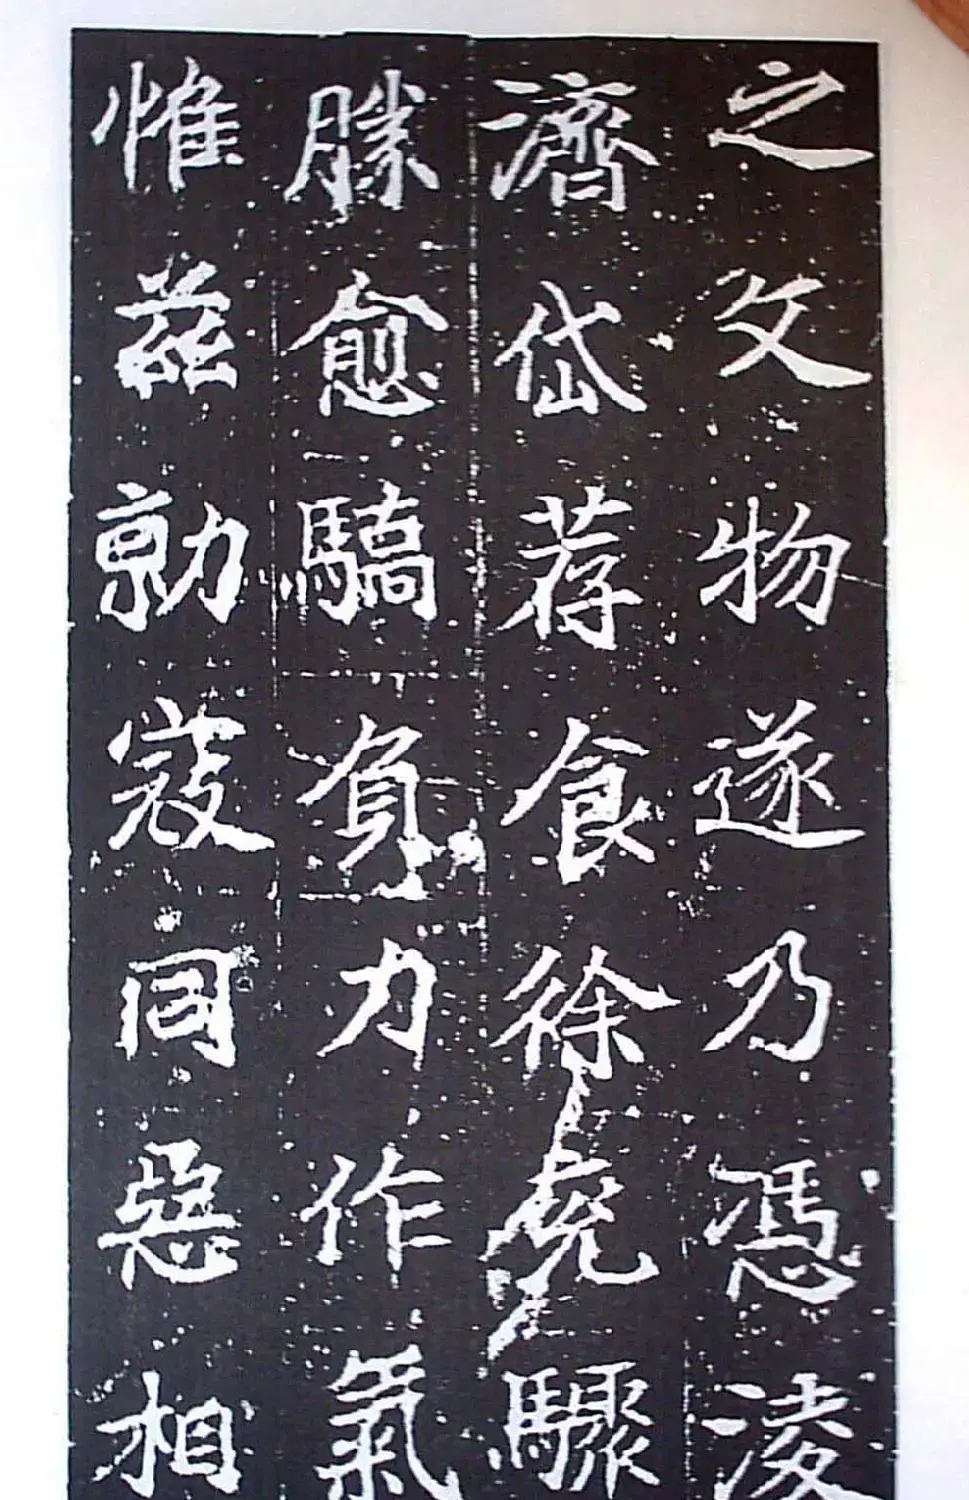 之文物遂乃憑淩
濟岱荐食徐兗驟
勝愈驕負力作氣
惟茲勍寇同惡相